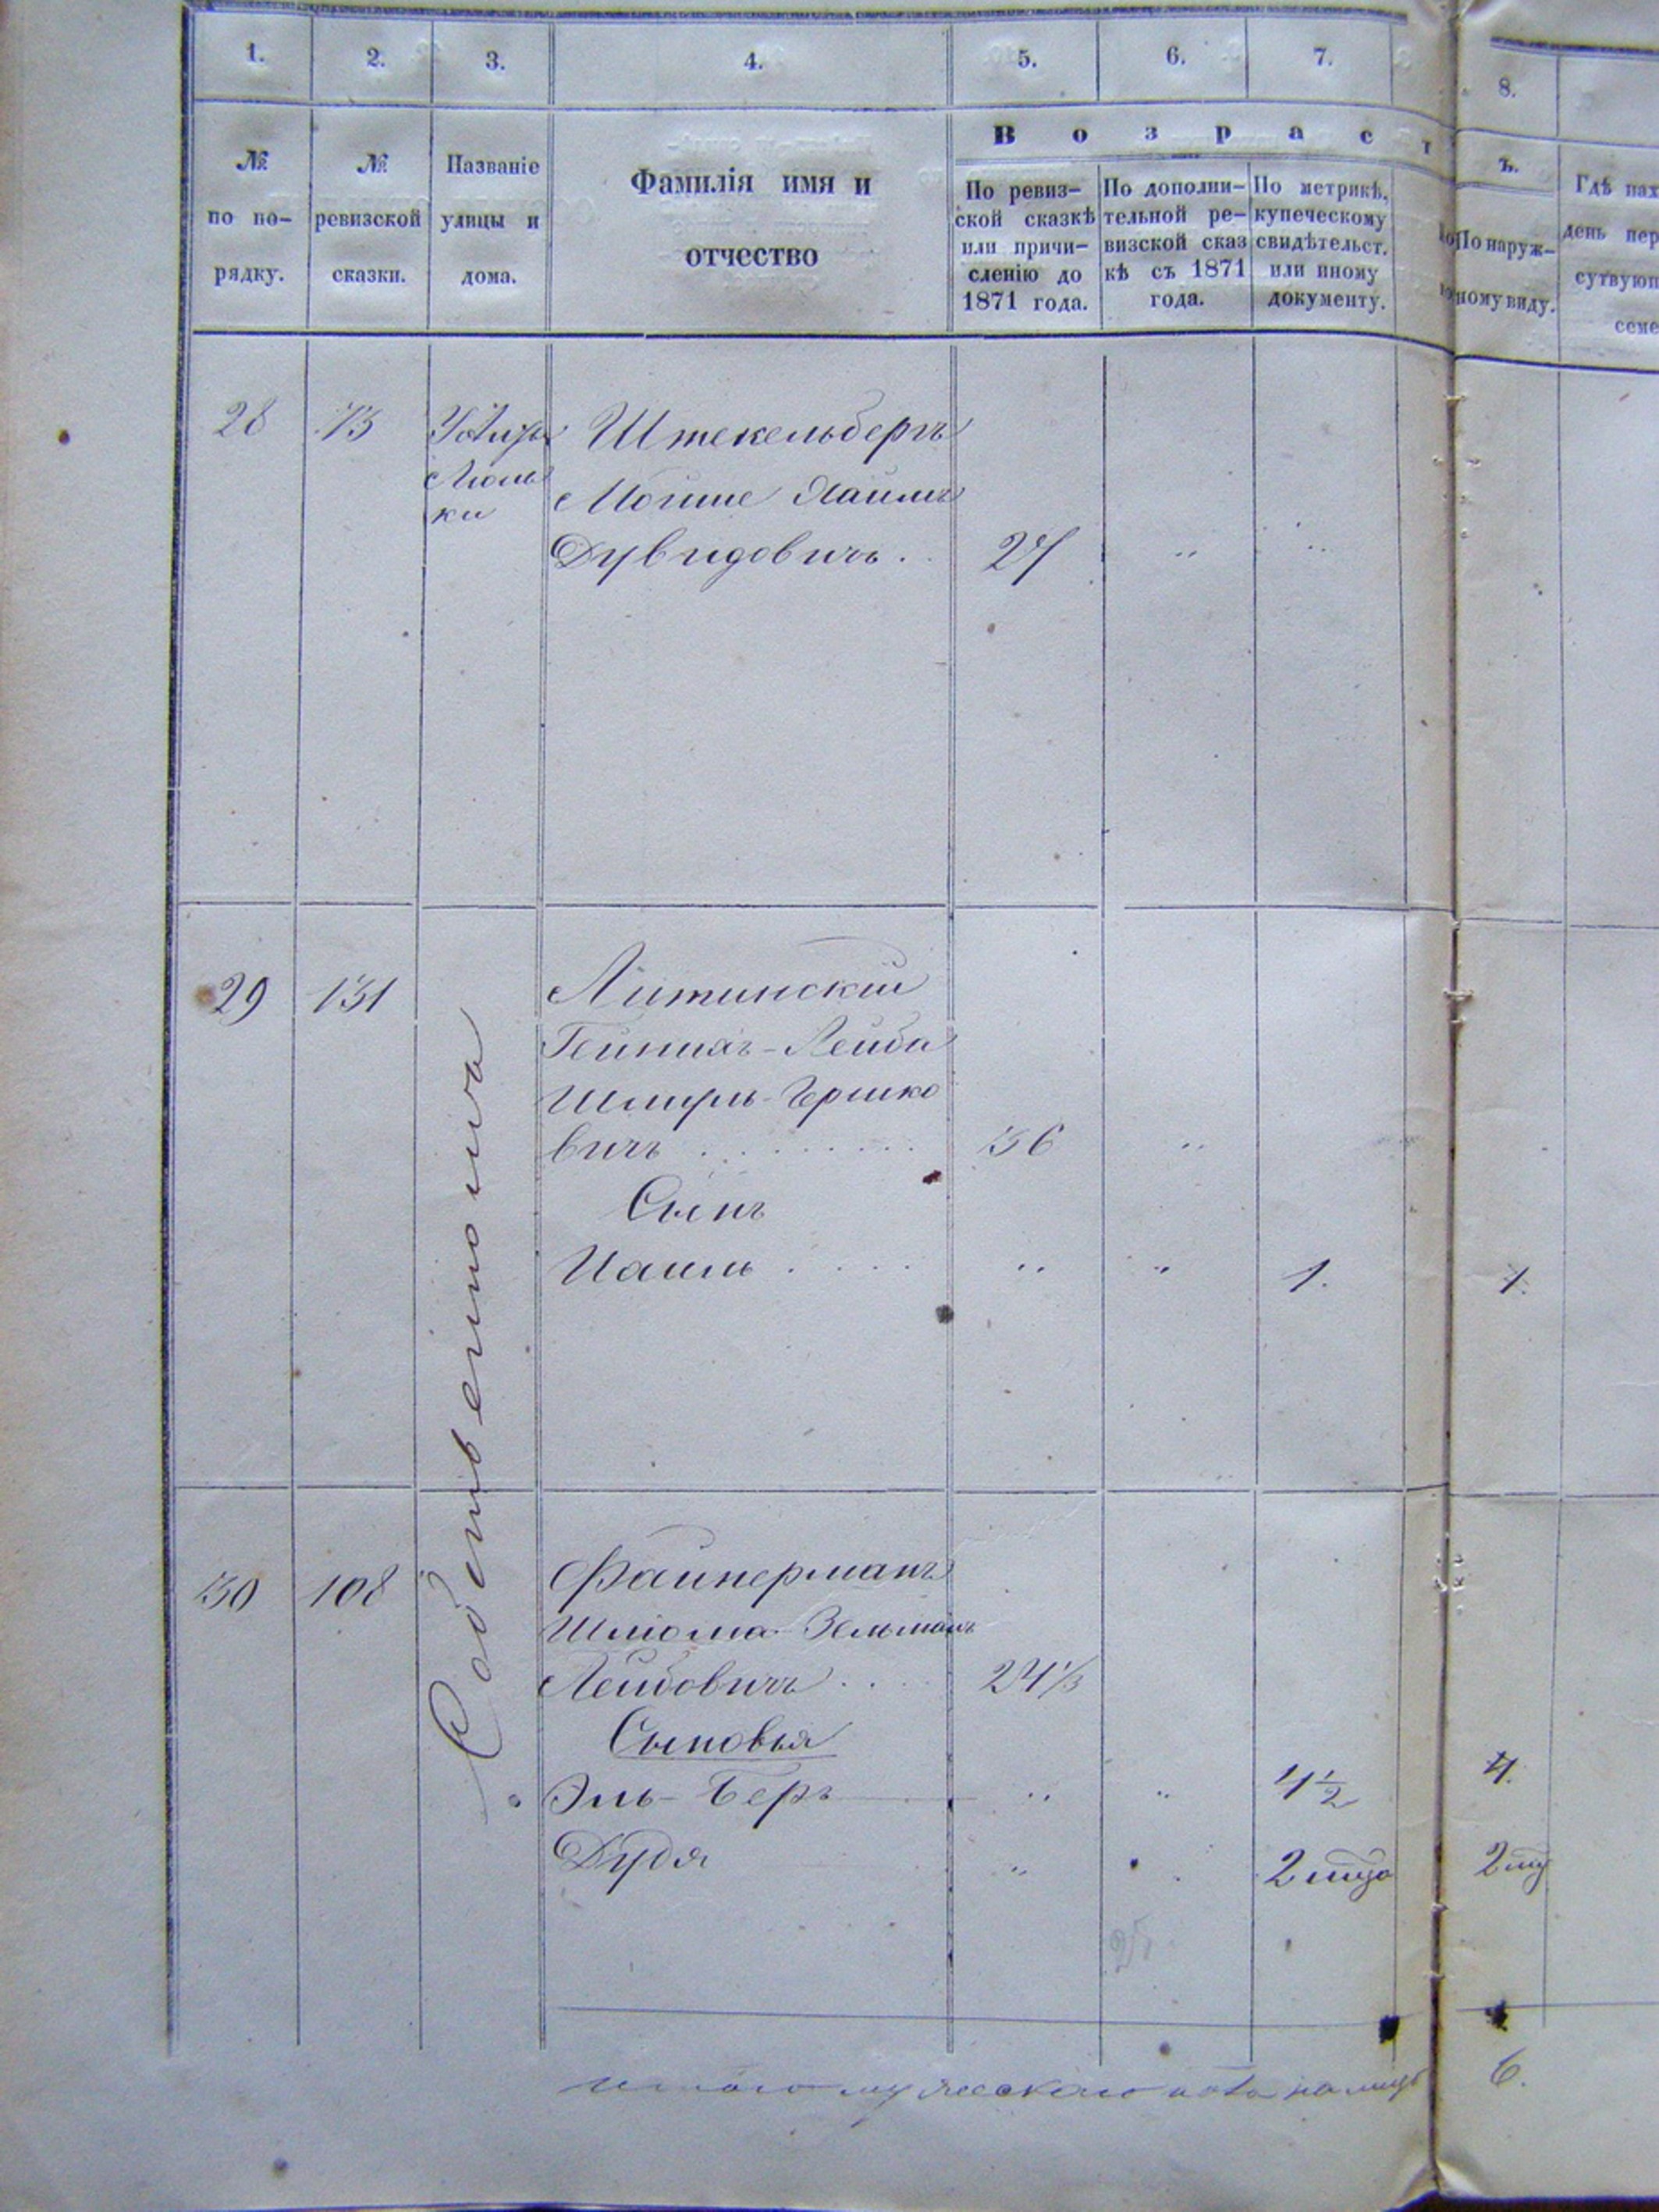 1. 2. 3. 4. 5. 6. 7. 8.
В о з р а с т ъ.
№ по по-рядку.
№ ревизской сказки.
Названіе улицы и дома.
Фамилія имя и отчество
По ревиз-
ской сказкѣ
или причи-
сленію до
1871 года.
По дополни-
тельной ре-
визской сказ
кѣ съ 1871
года.
По метрикѣ,
купеческому
свидѣтельст.
или иному
документу.
По наруж-
ному виду.
Гдѣ нах
день пер
сутвующ
семе
28 73 Штекельбергъ
Мошие Хаимъ
Дувидовичъ . . 27 " "
29 131 Литинскій
Лейба
Шмуль-Гершко
вичъ . . . . . . . . . 36 "
Сынъ
Иаиль . . . . . " " 1. 1.
Собственного
30 108 Файнерманъ
Шліома Зельманъ
Лейбовичъ . . . . 24 1/3
Сыновья
Эль-Беръ " " 4 1/2 4.
Дудя " " 2 мца 2 мц
25
итого мужескаго пола на лицо 6.